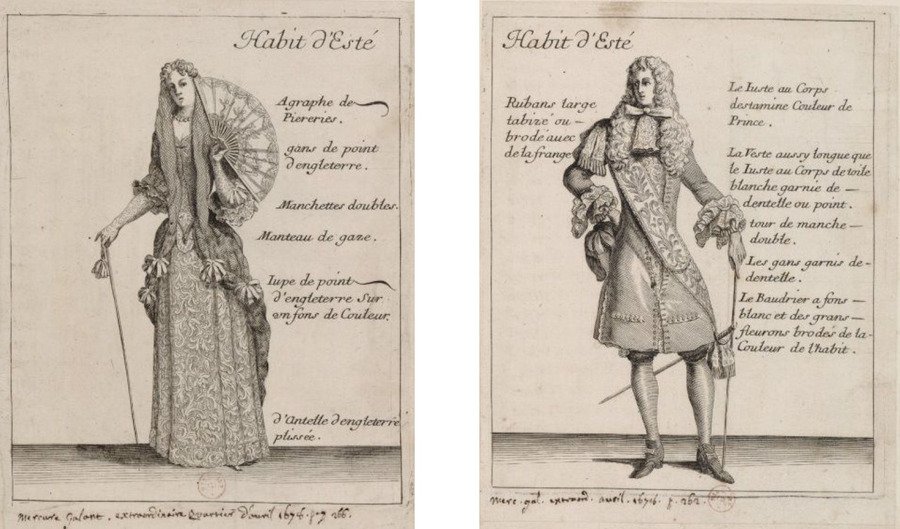 Habit d'Esté
Agraphe de
Piereries.
gans de point
d'engleterre.
Manchettes doubles.
Manteau de gaze.
Iupe de point
d'engleterre Sur
un fons de Couleur.
d'Antelle d'engleterre
plissée.
Mercure Galant. extraordinaire Quartier d'avril 1678. pag 266.
Habit d'Esté
Rubans large
tabizé ou
brodé auec
de la frange
Le Iuste au Corps
destamine Couleur de
Prince.
La Veste aussy longue que
le Iuste au Corps de toile
blanche garnie de
dentelle ou point.
tour de manche
double.
Les gans garnis de
dentelle.
Le Baudrier a fons
blanc et des grans
fleurons brodés de la
Couleur de l'habit.
Merc. gal. extraord. avril. 1678. p. 262.